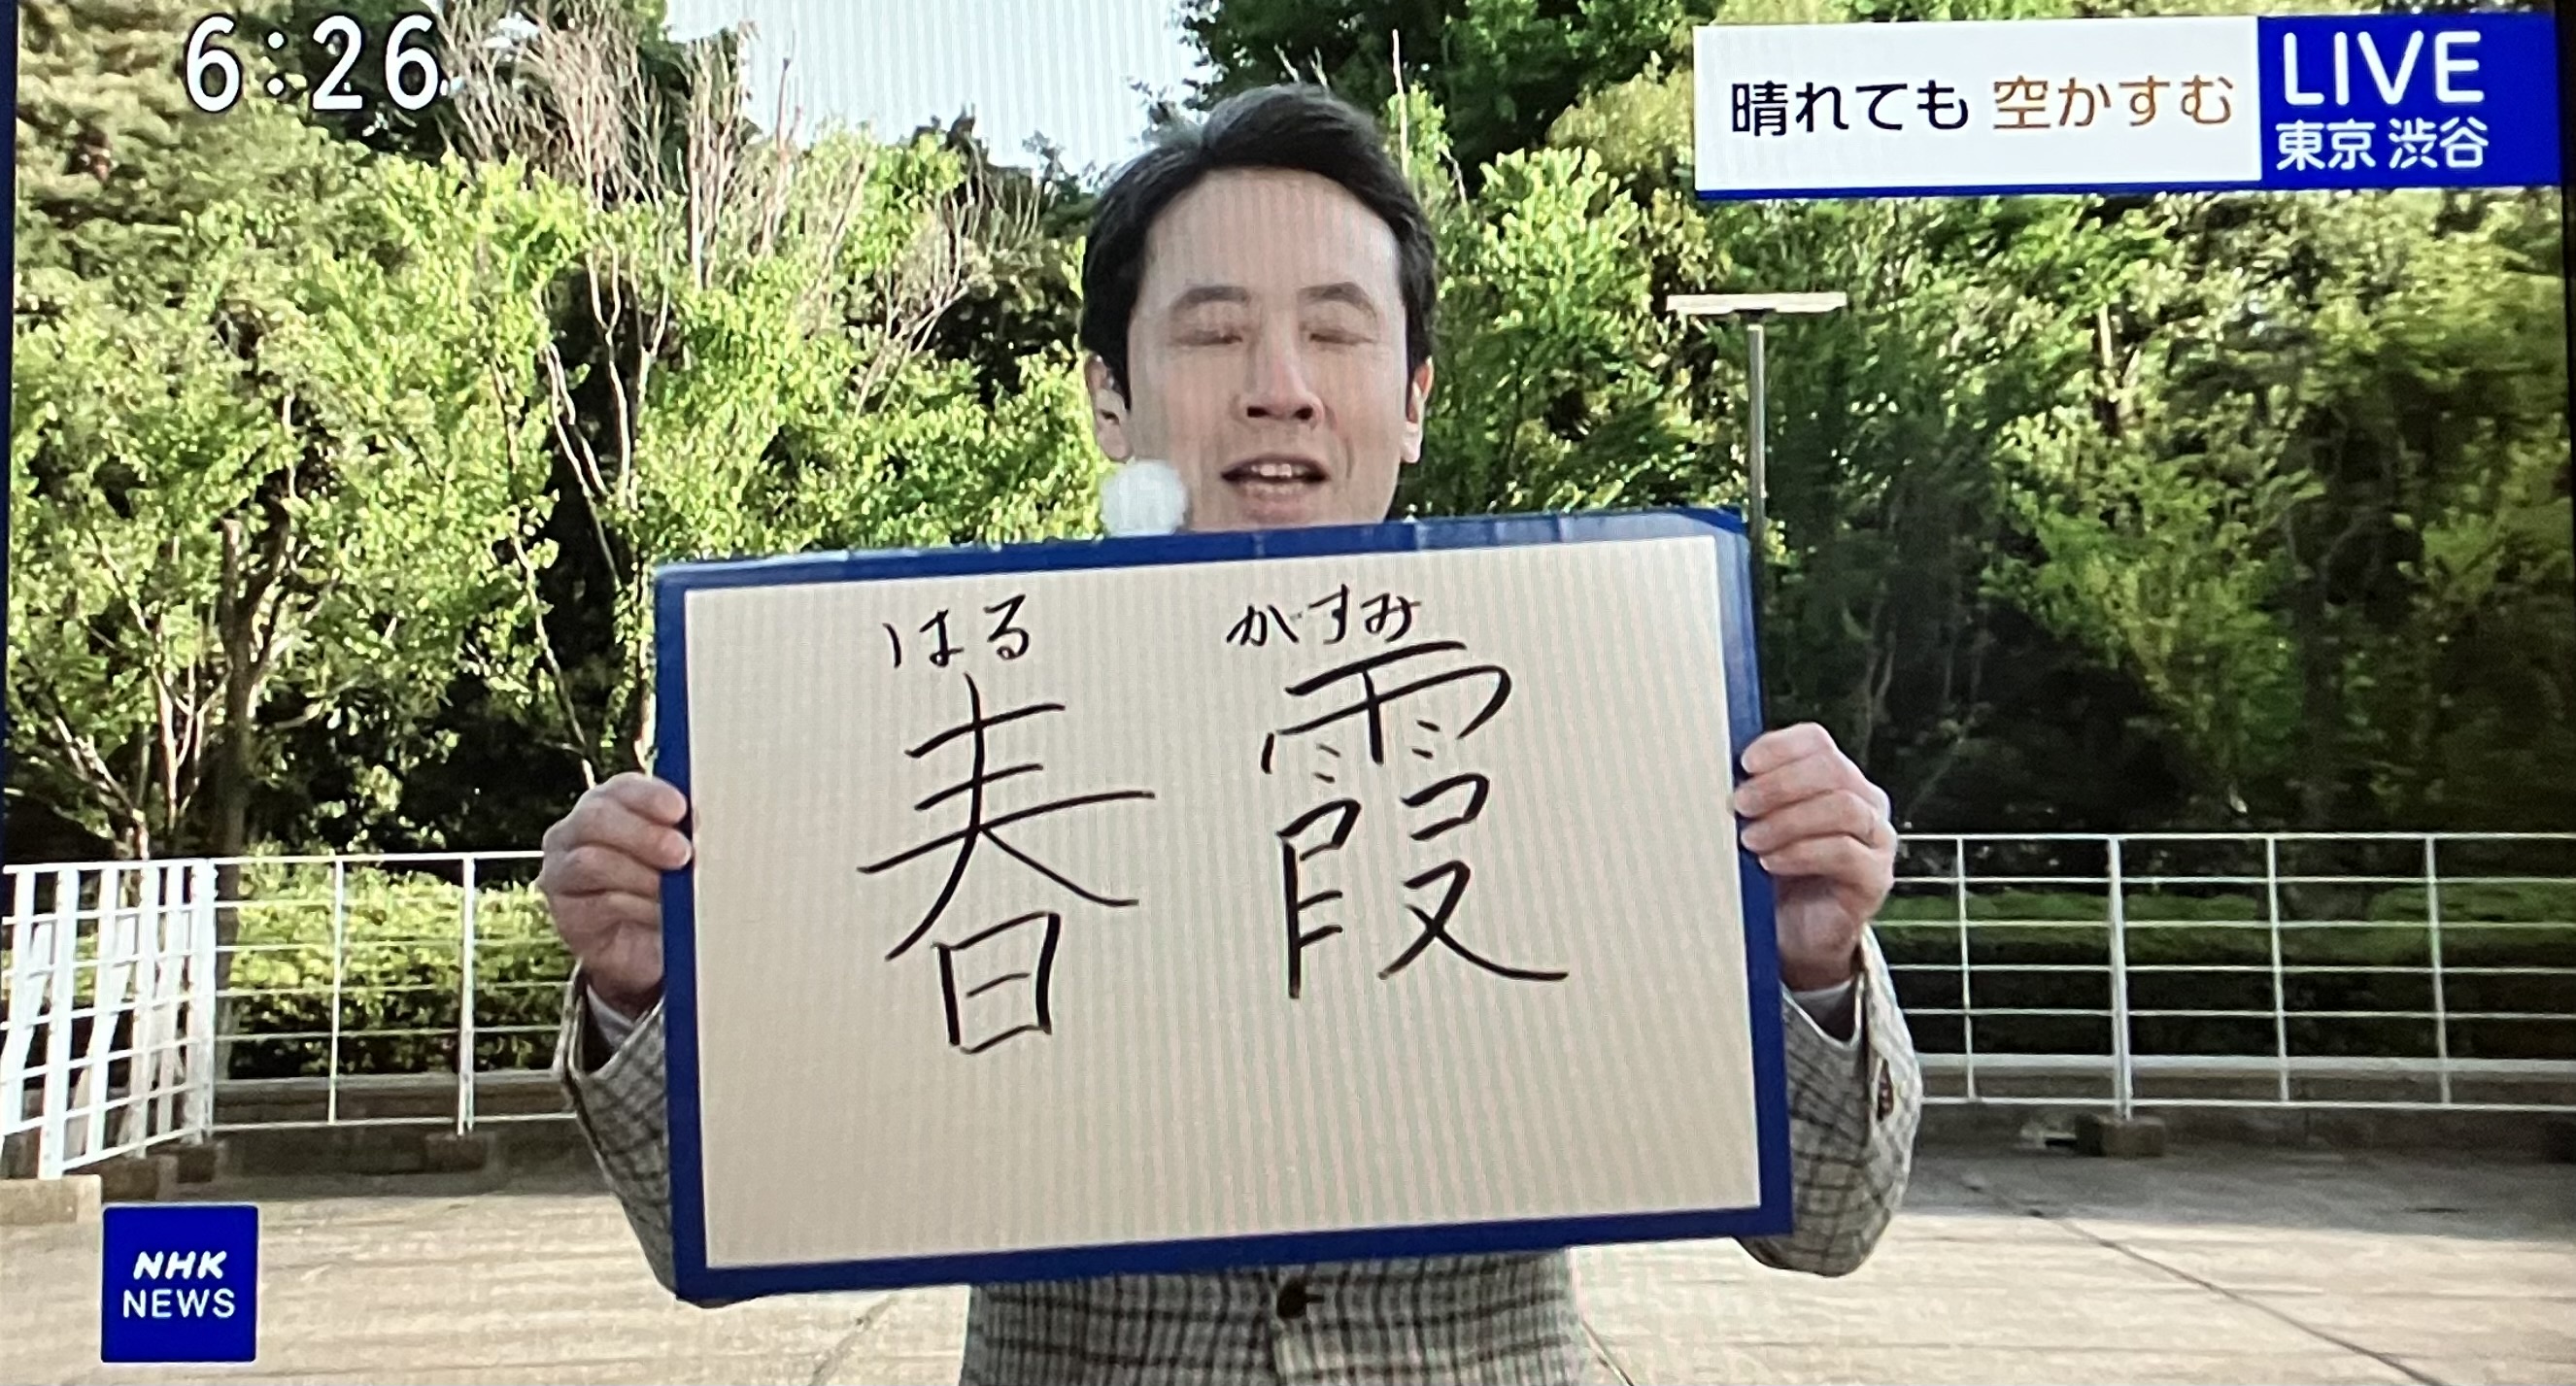 6:26
晴れても 空かすむ
LIVE
東京 渋谷
はる がすみ
春 霞
NHK
NEWS